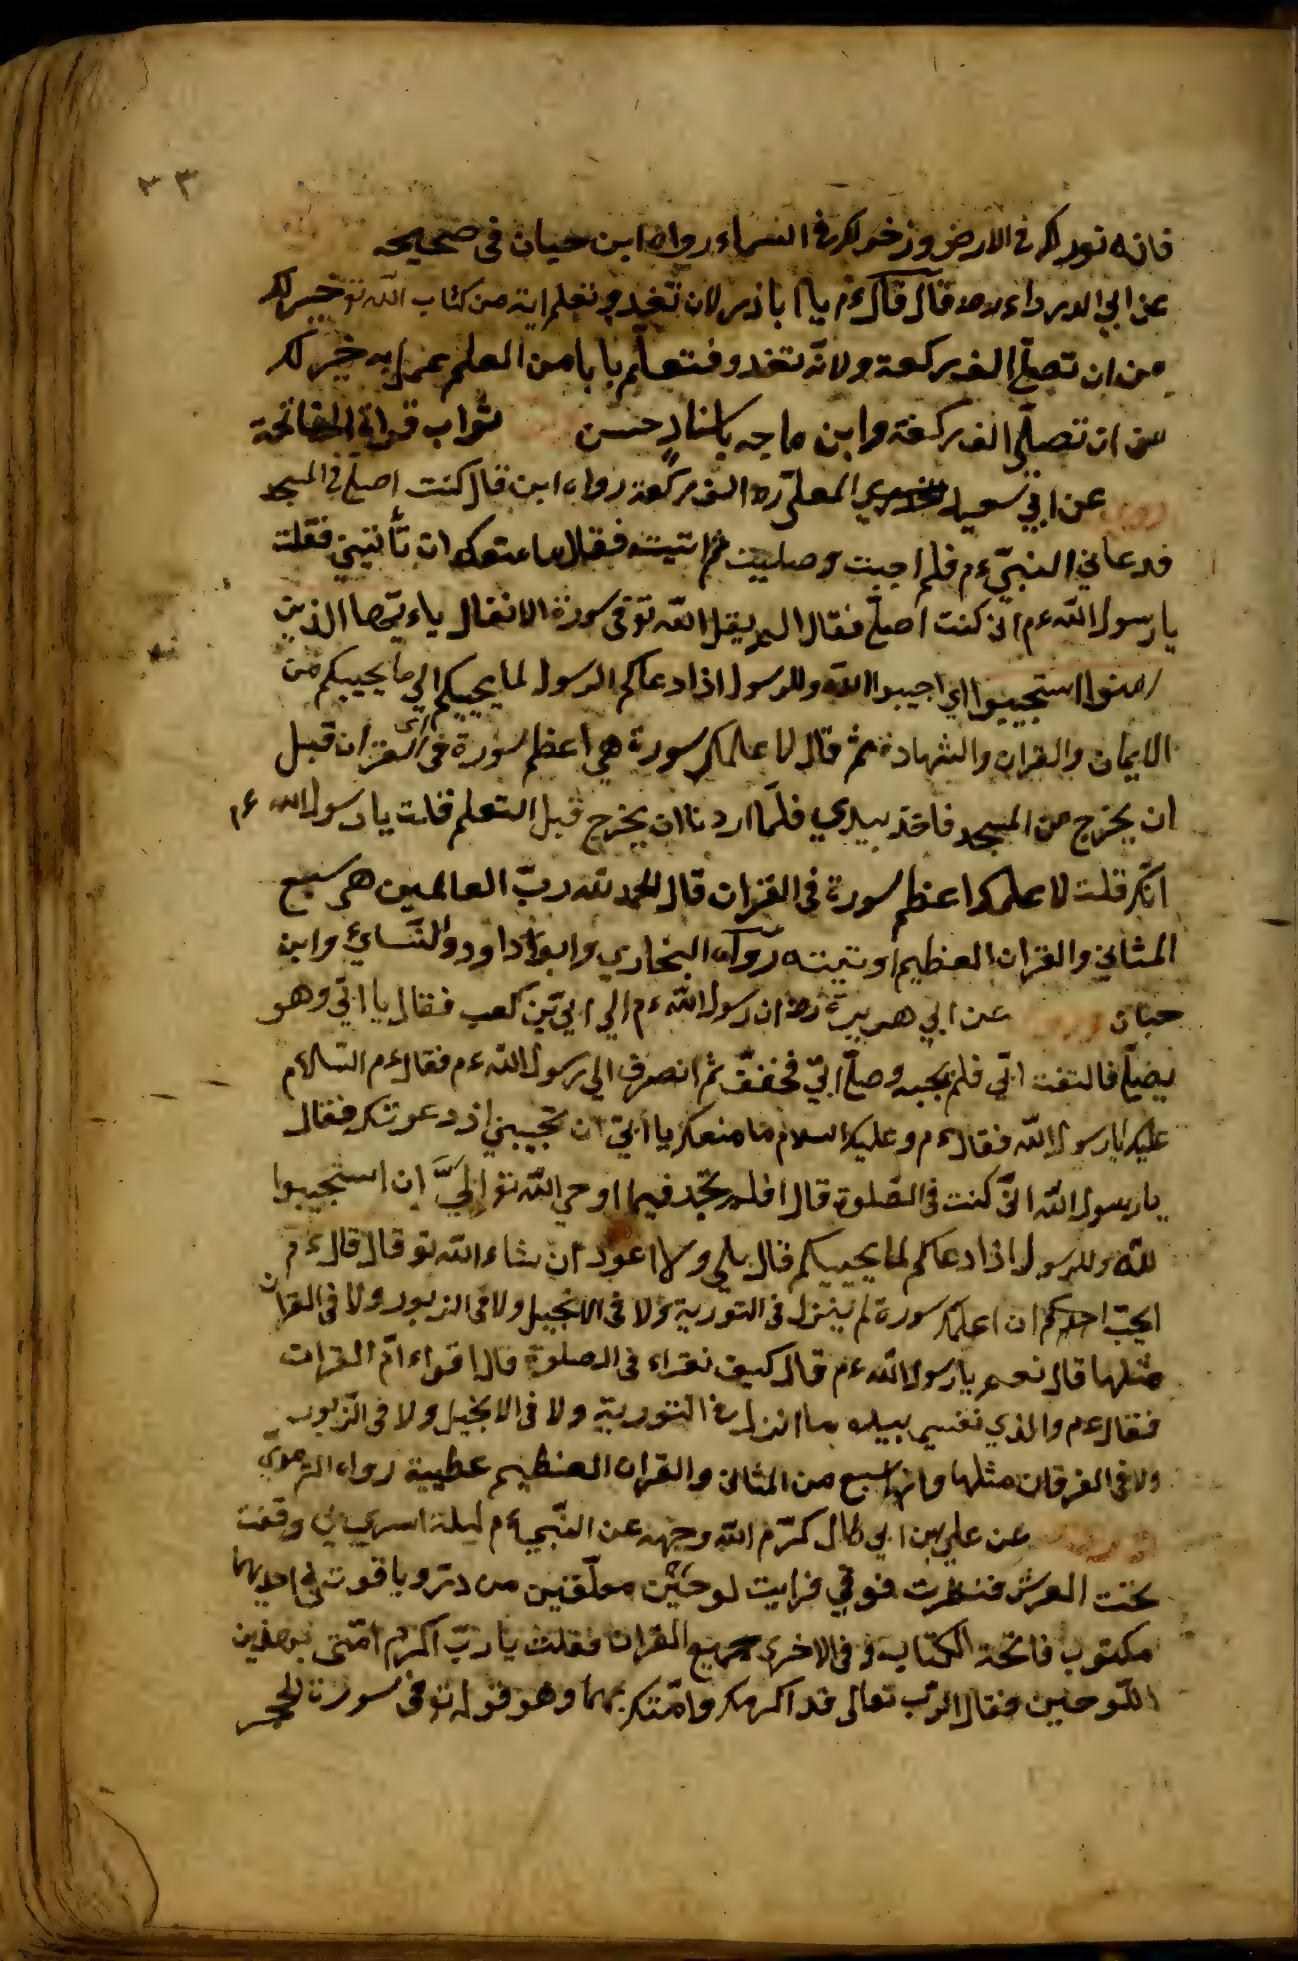 ٣٣
فانه نور لك فى الارض وذخر لك فى السماء رواه ابن حبان فى صحيحه
عن ابي الدرداء رضه قال قال ءم يا ابا ذر لان تغدو وتعلم اية من كتاب الله تع خير لك
من ان تصلّي الف ركعة ولانّ تغدو فتعلّم بابا من العلم عمل به خير لك
من ان تصلّى الف ركعة وابن ماجه باسنادٍ حسن ثواب قراة الفاتحة
روي عن ابي سعيد المعلّى رضه الف ركعة رواه ابن قال كنت اصلّي فى المسجد
فدعاني النبيّ ءم فلم اجبت وصليت ثم اتيته فقال ما منعك ان تأتيني فقلت
يا رسول الله ءم انى كنت اصلّي فقال الم يقل الله تع فى سورة الانفال ياءيّها الذين
امنوا استجيبوا اي اجيبوا الله وللرسول اذا دعاكم الرسول لما يحييكم الى ما يحييكم من
الايمان والقران والشهادة ثم قال لا علمك سورة هي اعظم سورة فى القران قبل
ان يخرج من المسجد فاخذ بيدي فلمّا اردنا ان يخرج قبل التعلم قلت يا رسول الله ءم
انّك قلت لا علمك اعظم سورة فى القران قال الحمد لله ربّ العالمين هى سبع
المثاني والقران العظيم اوتيته رواه البخاري وابو داود والنّسائ وابن
حبّان عن ابي هريرة رضه ان رسول الله ءم الى ابيّ بن كعب فقال يا ابيّ وهو
يصلّي فالتفت ابّى فلم يجبه وصلّى ابيّ فخفّف ثم انصرف الى رسول الله ءم فقال ءم السّلام
عليك يا رسول الله فقال ءم وعليك السلام ما منعك يا ابيّ ان تجيبني اذ دعوتك فقال
يا رسول الله انّى كنت فى الصّلوة قال افلم تجد فيما اوحى الله تع اليَّ ان استجيبوا
لله وللرسول اذا دعاكم لما يحييكم قال بلى ولا اعود ان شاء الله تع قال قال ءم
ايحبّ احدكم ان اعلمك سورة لم ينزل فى التورية ولا فى الانجيل ولا فى الزبور ولا فى القران
مثلها قال نعم يا رسول الله ءم قال كيف تقراء فى الصلوة قال اقواء امّ القرات
فقال ءم والذي نفسي بيده ما انزل فى التورية ولا فى الانجيل ولا فى الزّبور
ولا فى الفرقان مثلها وانها سبع من المثانى والقران العظيم عطيية رواه الترمذيّ
عن علي بن ابي طال كرّم الله وجهه عن النّبي ءم ليلة اسري بي وقفت
تحت العرش فنظرت فوقي فرايت لوحين معلّقين من درّ وياقوت فى احديهما
مكتوب فاتحة الكتاب وفى الاخرى جميع القران فقلت يا ربّ اكرم امّتى بهذين
اللّوحين فقال الرّب تعالى قد اكرمك وامّتك بهما وهو قوله تع فى سورة الحجر